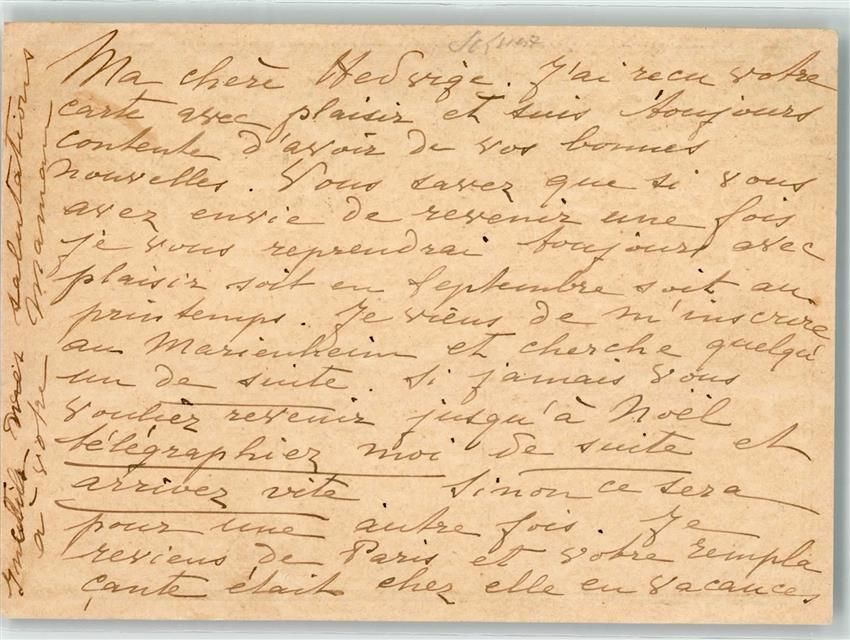 Ma chère Hedwige. J'ai recu votre
carte avec plaisir et suis toujours
contente d'avoir de vos bonnes
nouvelles. Vous savez que si vous
avez envie de revenir une fois
je vous reprendrai toujours avec
plaisir soit en Septembre soit au
printemps. Je viens de m'inscrire
au Marienheim et cherche quelqu'
un de suite. Si jamais vous
vouliez revenir jusqu'à Noël
télégraphiez moi de suite et
arrivez vite. Sinon ce sera
pour une autre fois. Je
reviens de Paris et votre rempla
çante était chez elle en vacances
mes salutations
à votre Maman